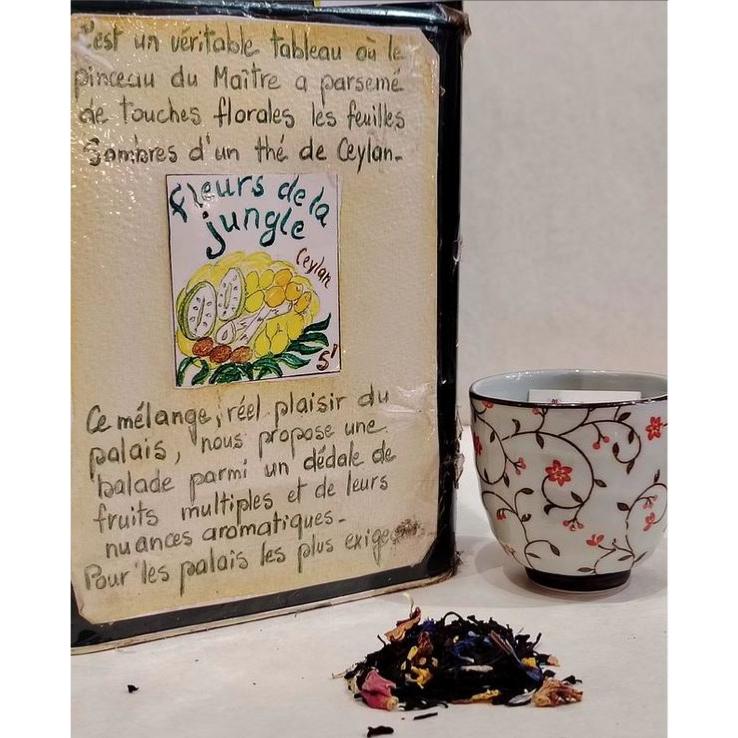 C'est un véritable tableau où le
pinceau du Maître a parsemé
de touches florales les feuilles
sombres d'un thé de Ceylan-
Fleurs de la
jungle
Ceylan
5'
Ce mélange, réel plaisir du
palais, nous propose une
balade parmi un dédale de
fruits multiples et de leurs
nuances aromatiques-
Pour les palais les plus